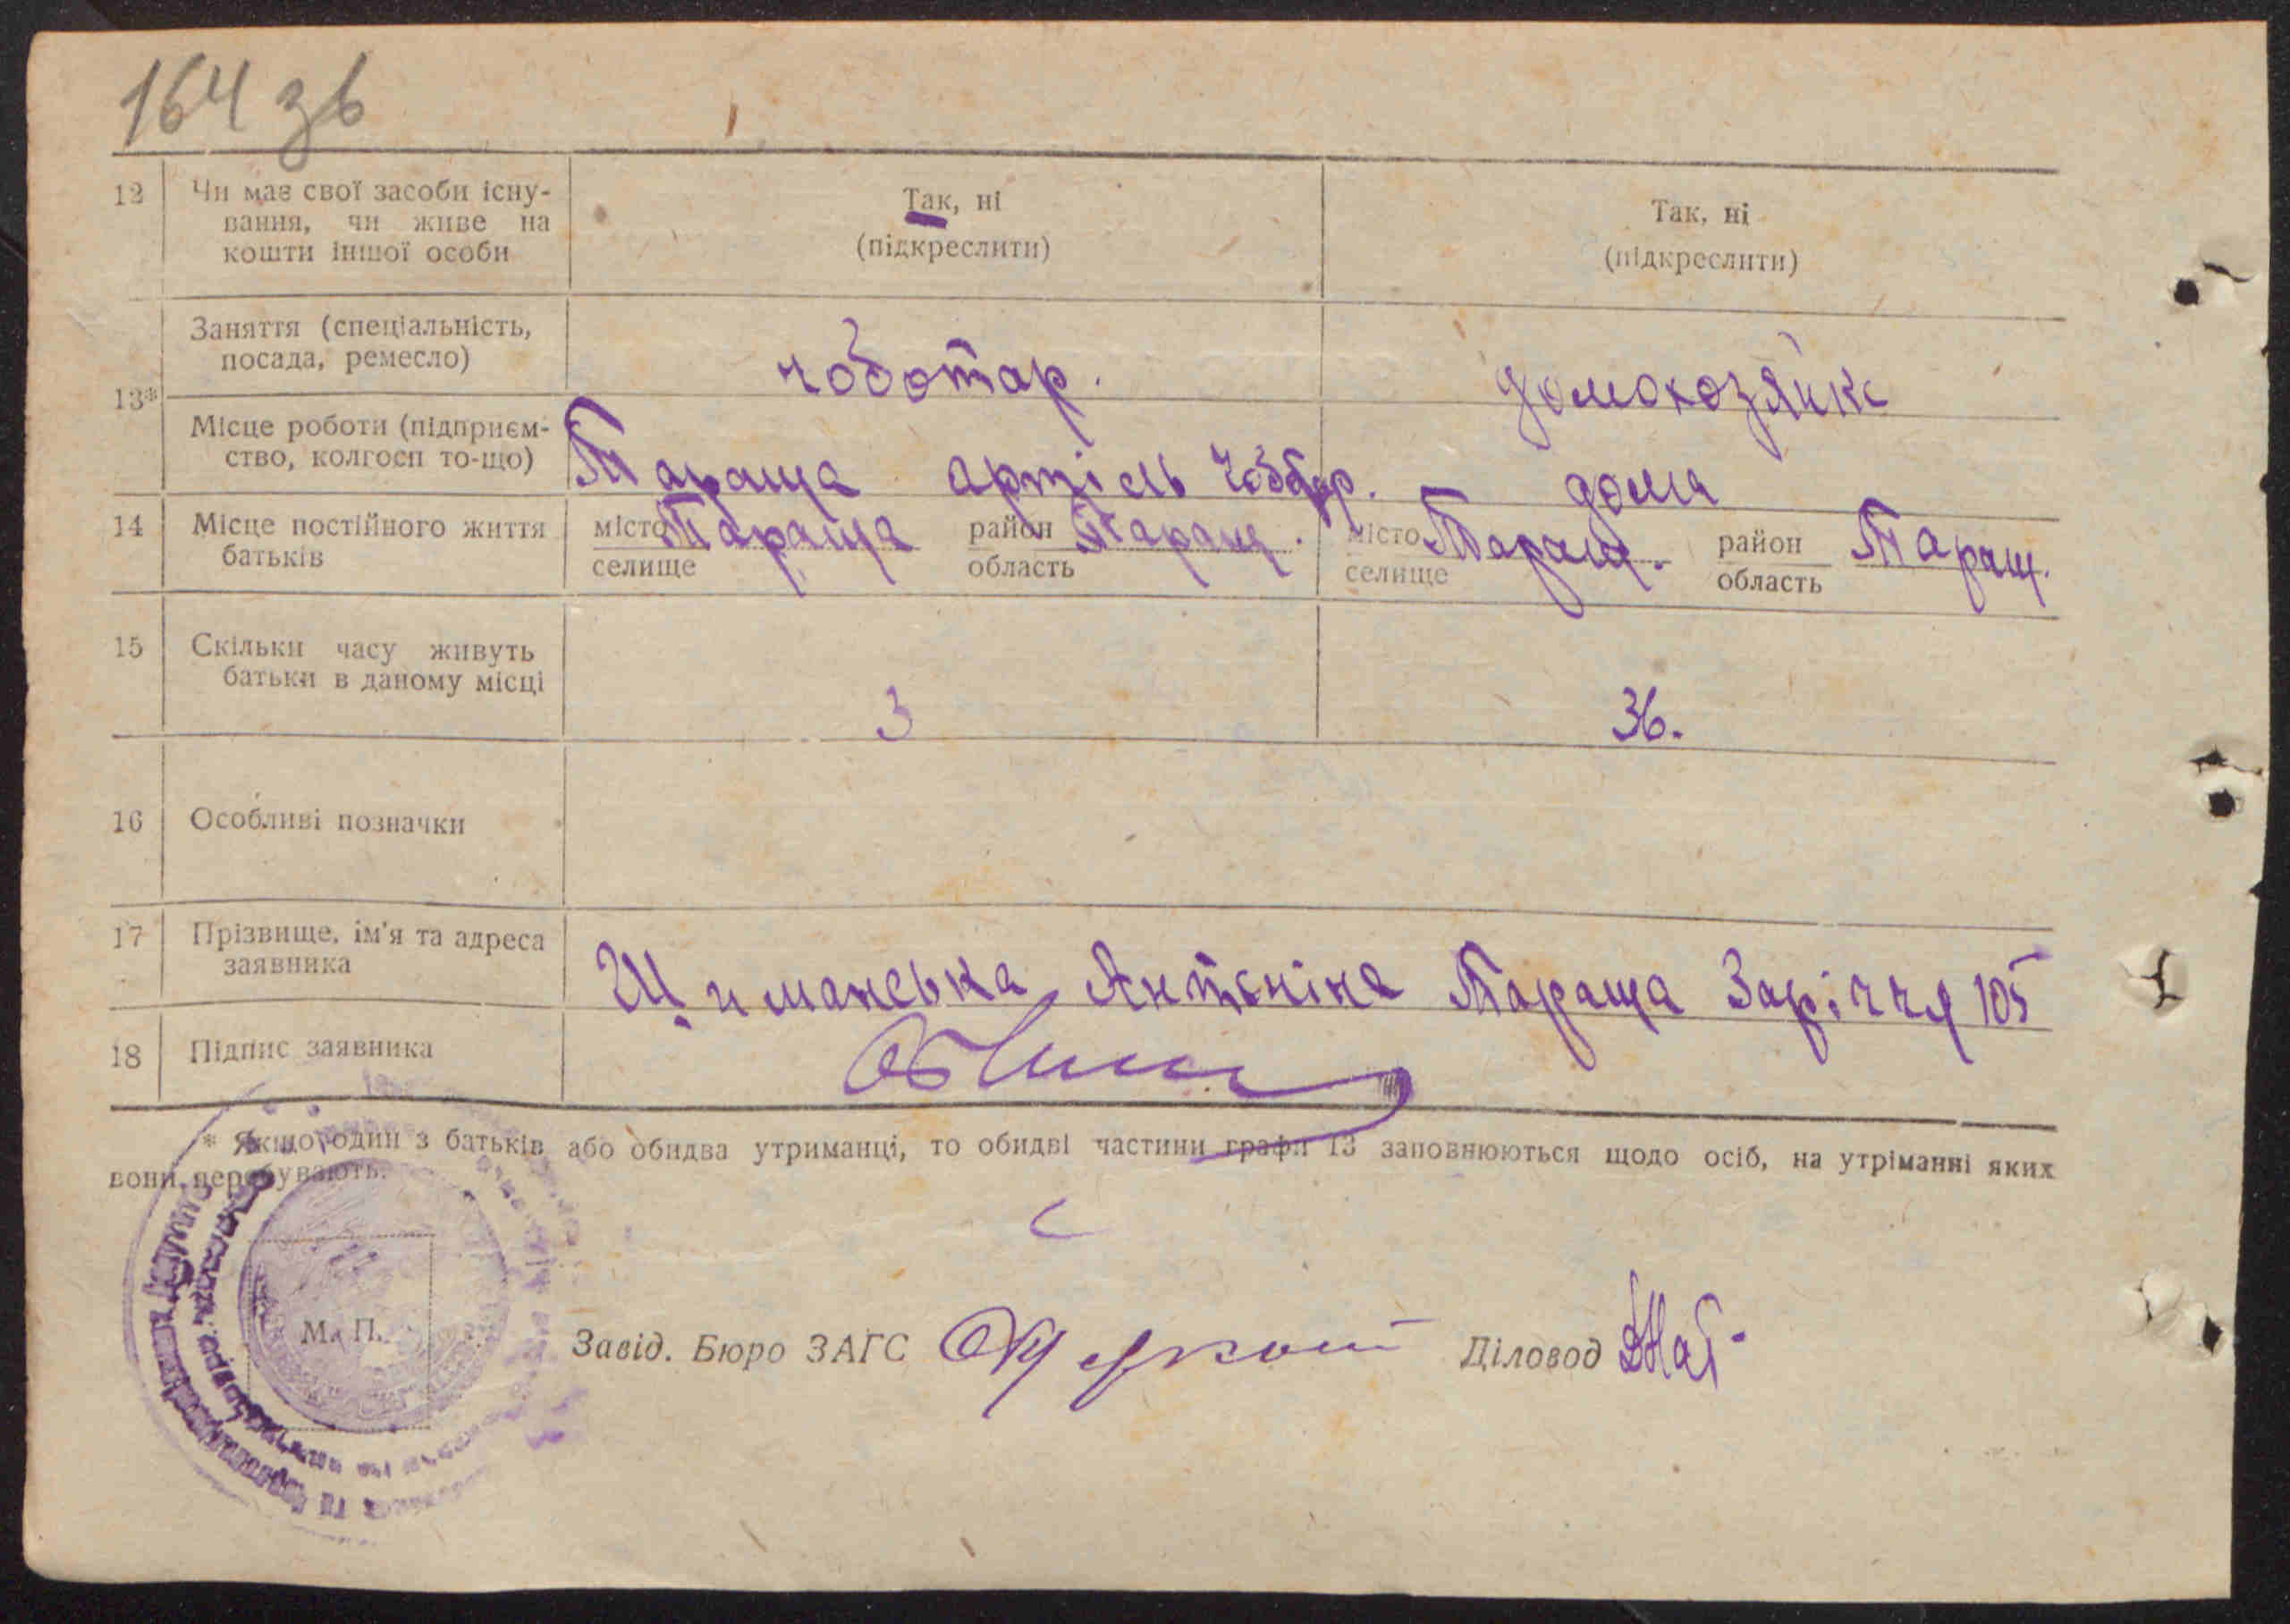 164 зв
12 Чи має свої засоби існу- Так, ні Так, ні
вання, чи живе на (підкреслити) (підкреслити)
кошти іншої особи
13* Заняття (спеціальність, чоботар. домохозяйка
посада, ремесло)
Місце роботи (підприєм- Тараща артіль чоботар. дома
ство, колгосп то-що)
14 Місце постійного життя місто Тараща район Таращ. місто Таращ. район Таращ.
батьків селище область селище область
15 Скільки часу живуть
батьки в даному місці 3 36.
16 Особливі позначки
17 Прізвище, ім'я та адреса
заявника Шиманська Антоніна Тараща Заріччя 105
18 Підпис заявника
* Якщо один з батьків або обидва утриманці, то обидві частини графи 13 заповнюються щодо осіб, на утріманні яких
вони перебувають.
М. П.
Завід. Бюро ЗАГС Діловод